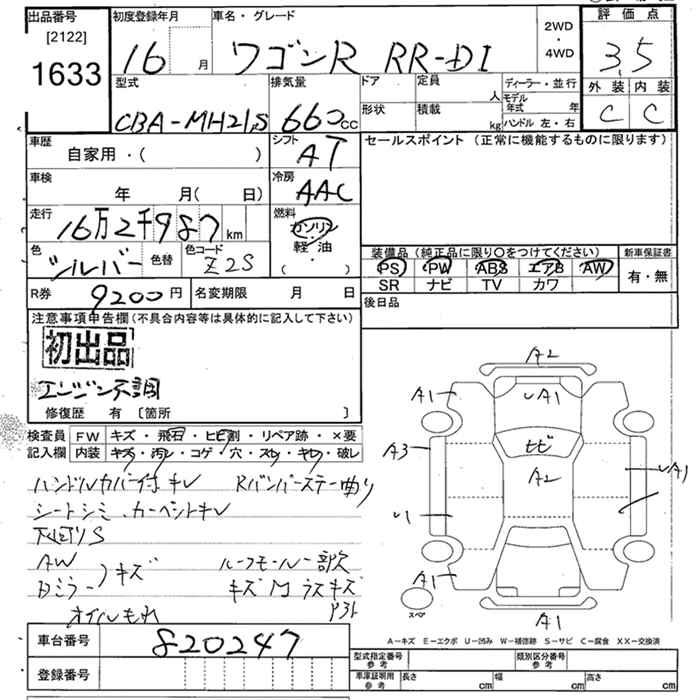 出品番号 初度登録年月 車名・グレード 2WD ・ 4WD 評価点
[2122]
1633 16 月 ワゴンR RR-DI 3.5
型式 排気量 ドア 定員 人 ディーラー・並行 外装 内装
形状 積載 kg モデル年式 年
CBA-MH21S 660cc ハンドル 左・右 C C
車歴 自家用・( ) シフト AT セールスポイント (正常に機能するものに限ります)
車検 年 月( 日) 冷房 AAC
走行 16万2千987 km 燃料 ガソリン
軽油
( )
色 シルバー 色替 色コード Z2S 装備品 (純正品に限り○をつけてください) 新車保証書
PS PW ABS エアB AW 有・無
SR ナビ TV カワ
R券 9200円 名変期限 月 日 後日品
注意事項申告欄 (不具合内容等は具体的に記入して下さい)
初出品
エンジン不調
修復歴 有 〔箇所 〕
検査員 FW キズ・飛石・ヒビ割・リペア跡・×要
記入欄 内装 キズ・汚レ・コゲ・穴・スレ・キレ・破レ
ハンドルカバー付キレ Rバンパーステー曲り
シートシミ、カーペットキレ
下廻りS
AW
Bミラー キズ ルーフモール一部欠
キズM ラスキズ
オイルもれ
A2
A1 UA1
A3 ヒビ A2 UA1
U1
A1 A1
スペア
A-キズ E-エクボ U-凹み W-補修跡 S-サビ C-腐食 XX-交換済
車台番号 820247
登録番号
型式指定番号 参考 類別区分番号 参考
車庫証明用 参考 長さ cm 幅 cm 高さ cm